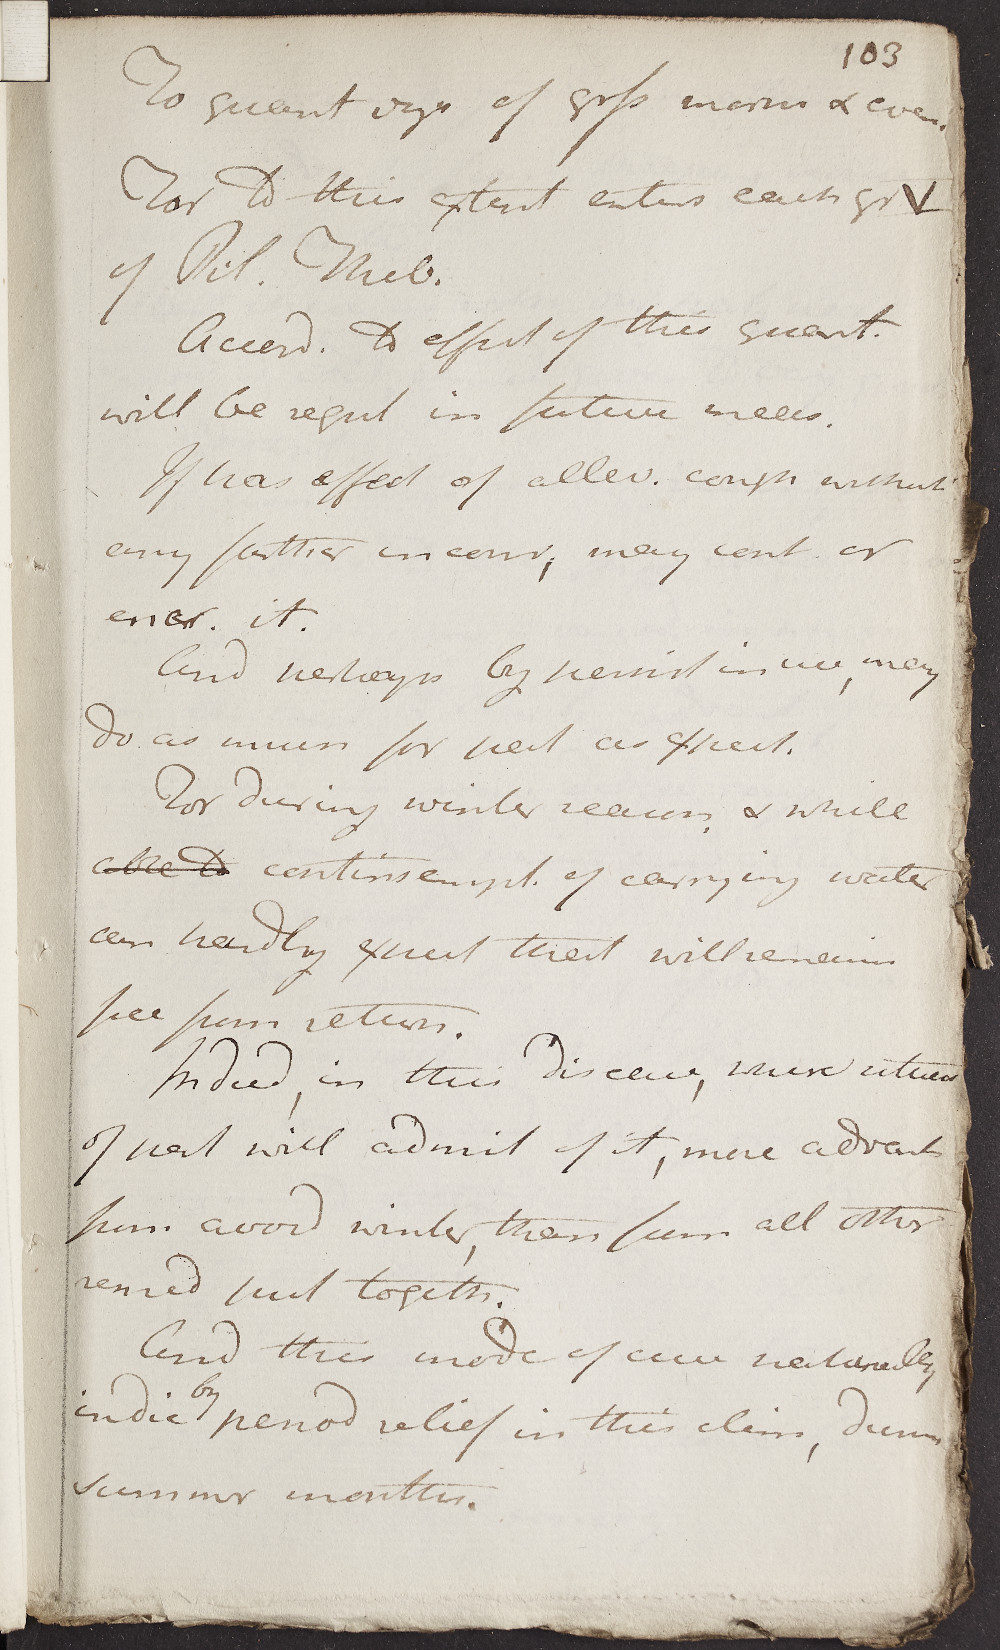 103
To quant of grſs morn & even.
For to this extent enters each gr V
of Pil. Theb.
Accord. to effect of this quant.
will be regul in future meas.
If has effect of allev. cough without
any further inconv, may cont. or
encr. it.
And perhaps by persist in use, may
do as much for pat as expect.
For during winter season, & while
able to contins empl. of carrying water
can hardly expect that will remain
free from return.
Indeed, in this disease, where
of pat will admit of it, more advant
from avoid winter, than from all other
remed put togeth.
And this mode of cure naturally
indic by period relief in this clim, durin
summr months.